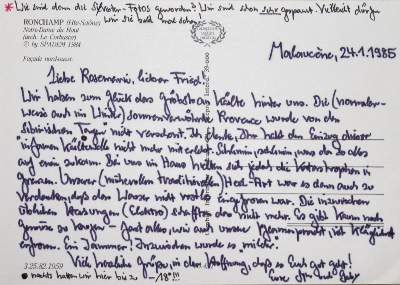 * Wie sind denn die Fotos geworden? Wir sind schon sehr gespannt. Vielleicht dürfen
wir sie bald mal sehen!
RONCHAMP (Hte-Saône)
Notre-Dame du Haut
(arch. Le Corbusier)
© by SPADEM 1984
Façade nord-ouest.
Malaucène, 24.1.1985
Liebe Rosemarie, lieber Fried!
Wir haben zum Glück das gröbste an Kälte hinter uns. Die (normaler-
weise auch im Winter) sonnenverwöhnte Provence wurde von den
sibirischen Tagen nicht verschont. Ich denke, Ihr habt den Einzug dieser
Kältewelle nicht mehr miterlebt. Schlimm, schlimm, was da so alles
auf einen zukam. Bei uns im Haus hielten sich jedoch die Katastrophen in
Grenzen. Unserer (mühevollen traditionellen) Heiz-Art war es dann auch zu
verdanken, daß das Wasser nicht restlos eingefroren war. Die inzwischen
üblichen Heizungen (Elektro) schafften das nicht mehr. Es gibt kaum noch
Gemüse zu kaufen - fast alles, wie auch unsere ist kläglich
erfroren. Ein Jammer! Inzwischen wurde es milder.
Viele herzliche Grüße, in der Hoffnung, daß es Euch gut geht!
3.25.82.1959
nachts hatten wir hier bis zu -18°!!!
Eure und